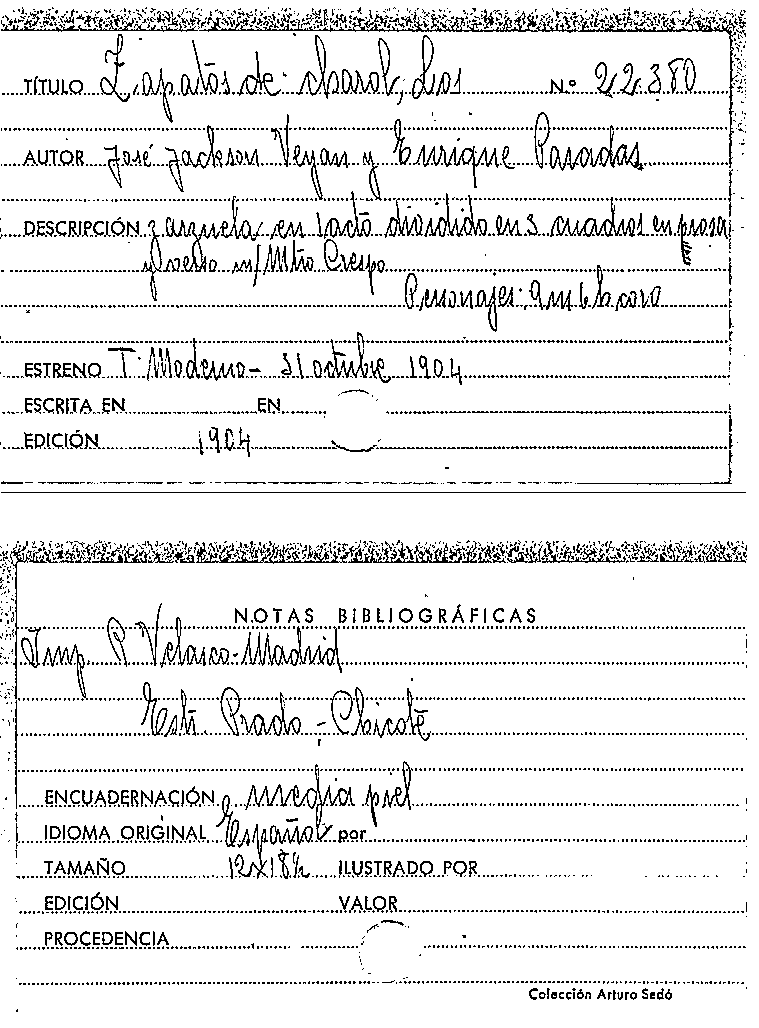 TÍTULO Zapatos de charol, Los Nº 22.380
AUTOR José Jackson Veyan y Enrique Paradas
DESCRIPCIÓN zarzuela en 1 acto dividido en 3 cuadros en prosa
y verso m/ Mtro Crespo
Personajes: 9m 6h coro
ESTRENO T. Moderno - 31 octubre 1904
ESCRITA EN EN
EDICIÓN 1904
NOTAS BIBLIOGRÁFICAS
Imp. R Velasco - Madrid
Estr. Prado - Chicote
ENCUADERNACIÓN media piel
IDIOMA ORIGINAL Español por
TAMAÑO 12x18½ ILUSTRADO POR
EDICIÓN VALOR
PROCEDENCIA
Colección Arturo Sedó